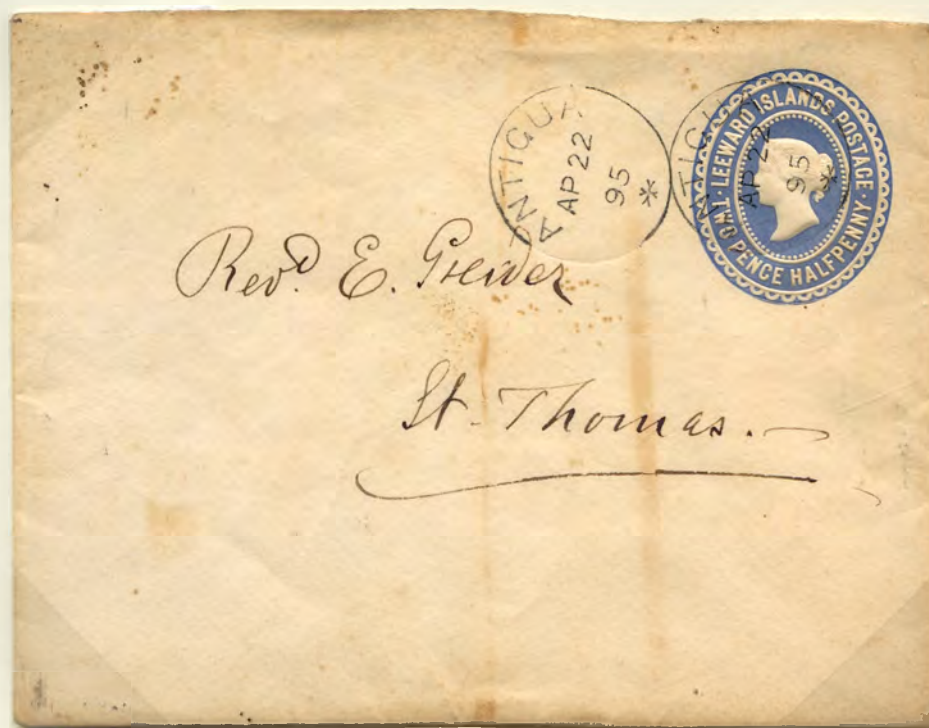 ANTIGUA
AP 22
95
*
ANTIGUA
AP 22
95
*
LEEWARD ISLANDS POSTAGE · TWO PENCE HALFPENNY ·
Revd. E.
St. Thomas. —